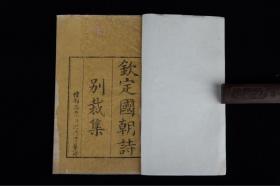 欽定國朝詩
別裁集